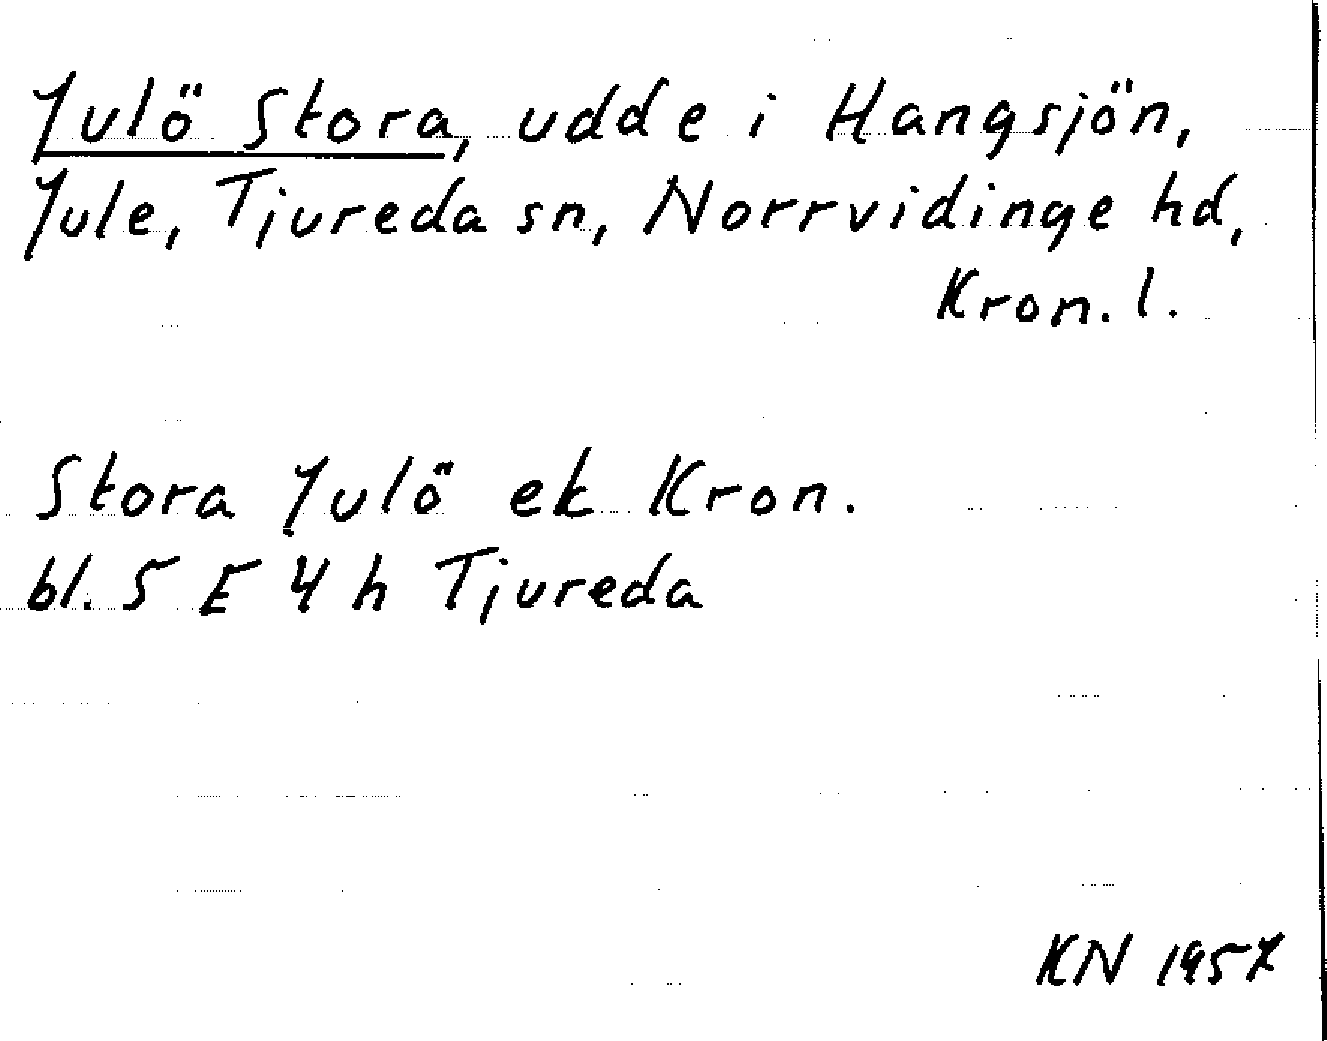 Julö Stora, udde i Hangsjön,
Jule, Tjureda sn, Norrvidinge hd,
Kron. l.
Stora Julö ek Kron.
bl. 5 E 4 h Tjureda
KN 1957